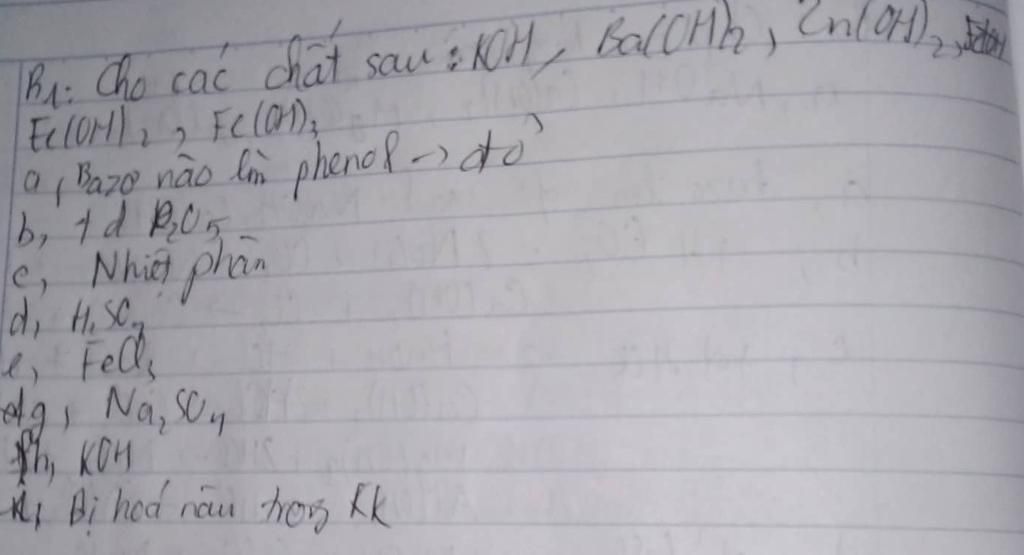 B1: Cho các chất sau: KOH, Ba(OH)2, Zn(OH)2,
Fe(OH)2, Fe(OH)3
a, Bazơ nào làm phenol → đỏ
b, td P2O5
c, Nhiệt phân
d, H2SO4
e, FeCl3
g, Na2SO4
h, KOH
Bị hoá nâu trong kk